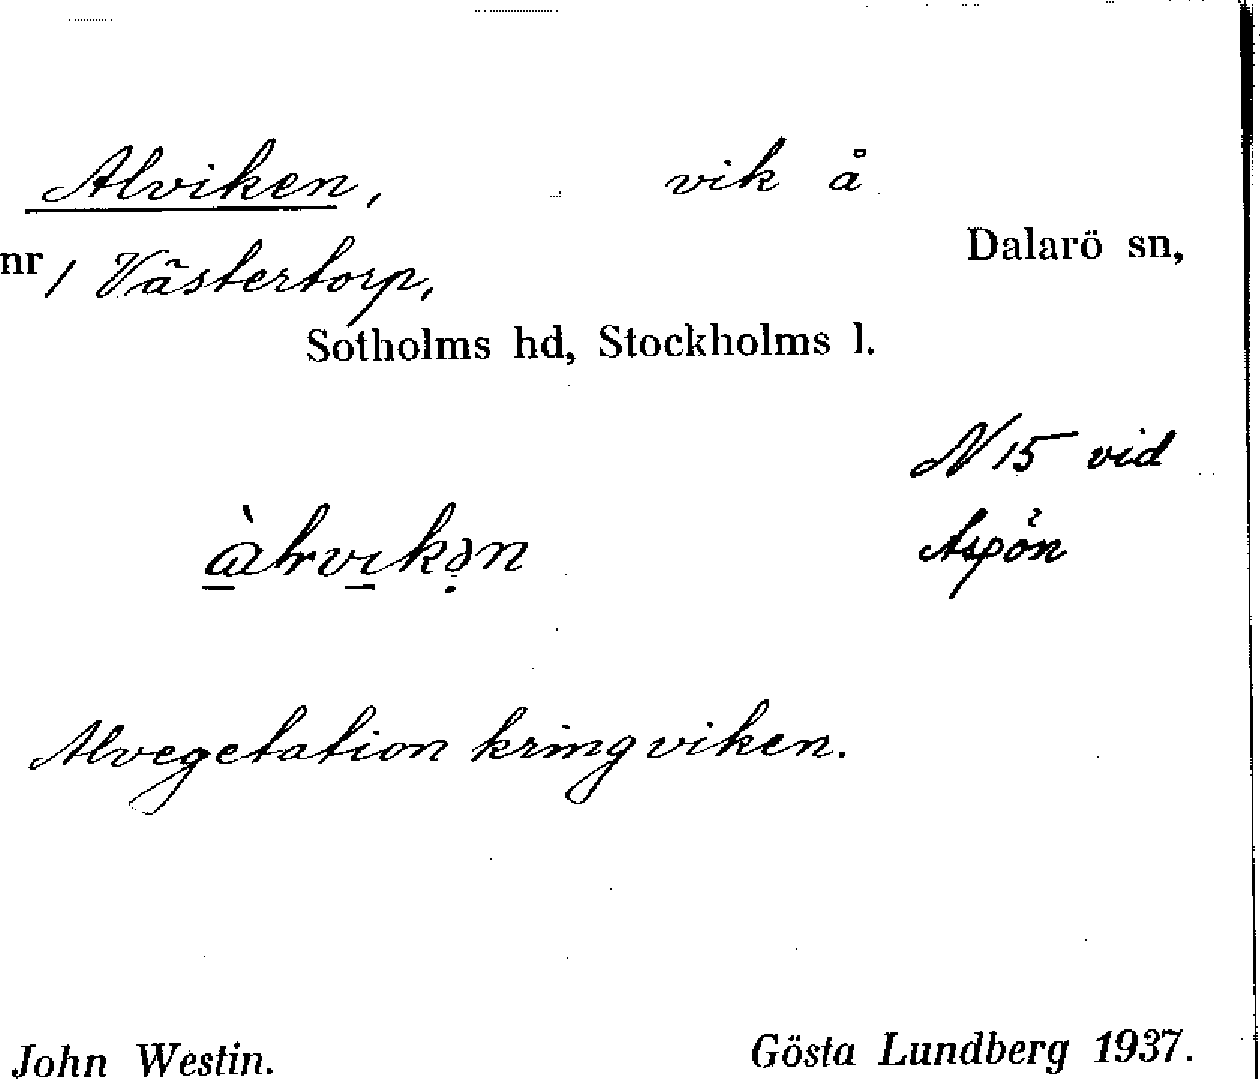 Alviken, vik å
nr 1 Västertorp, Dalarö sn,
Sotholms hd, Stockholms l.
N 15 vid
Aspön
Alvegetation kring viken.
John Westin. Gösta Lundberg 1937.